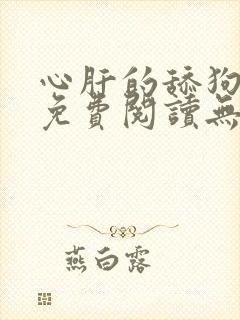 心肝的舔狗
免費閱讀無
燕白露